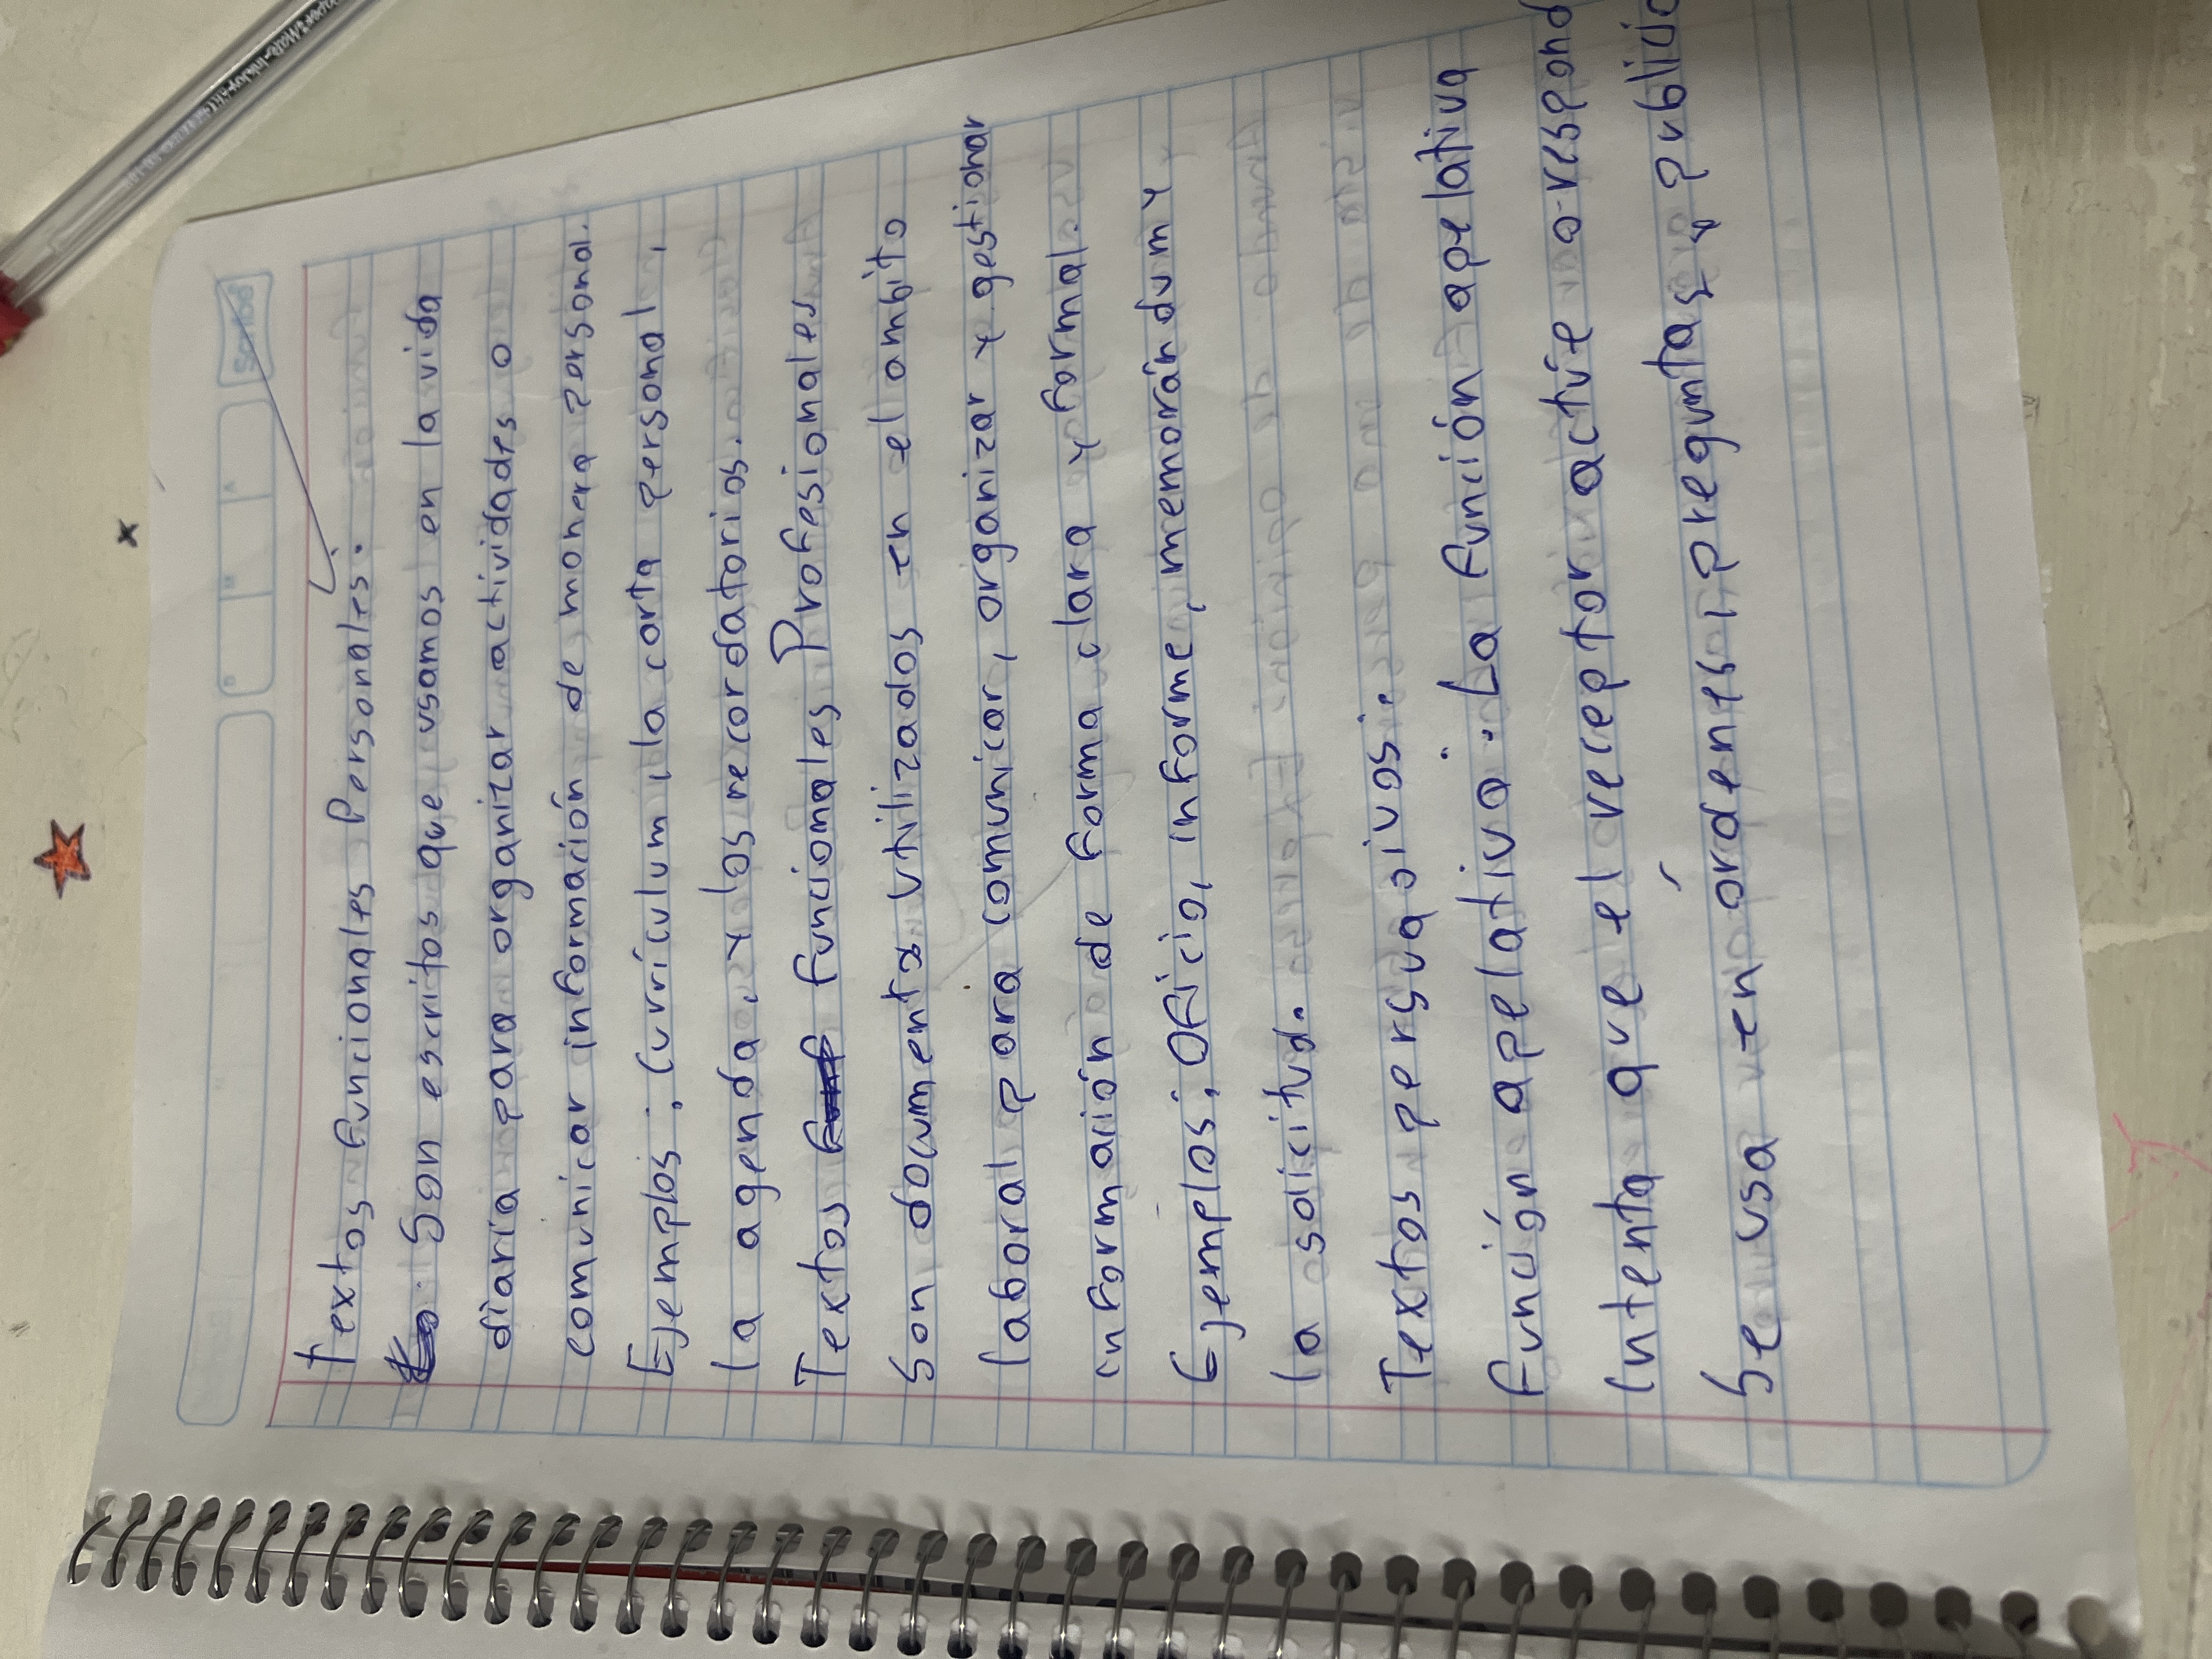 Textos funcionales Personales:
Son escritos que usamos en la vida
diaria para organizar actividades o
comunicar información de manera personal.
Ejemplos: Currículum, la carta personal,
la agenda, y los recordatorios.
Textos funcionales Profesionales
Son documentos utilizados en el ambito
laboral para comunicar, organizar y gestionar
información de forma clara y formal.
Ejemplos: Oficio, informe, memorándum y
la solicitud.
Textos persuaivos:
función apelativa: La función apelativa
Intenta que el receptor actúe o respond
Se usa en órdenes, preguntas, y publici
Scribe